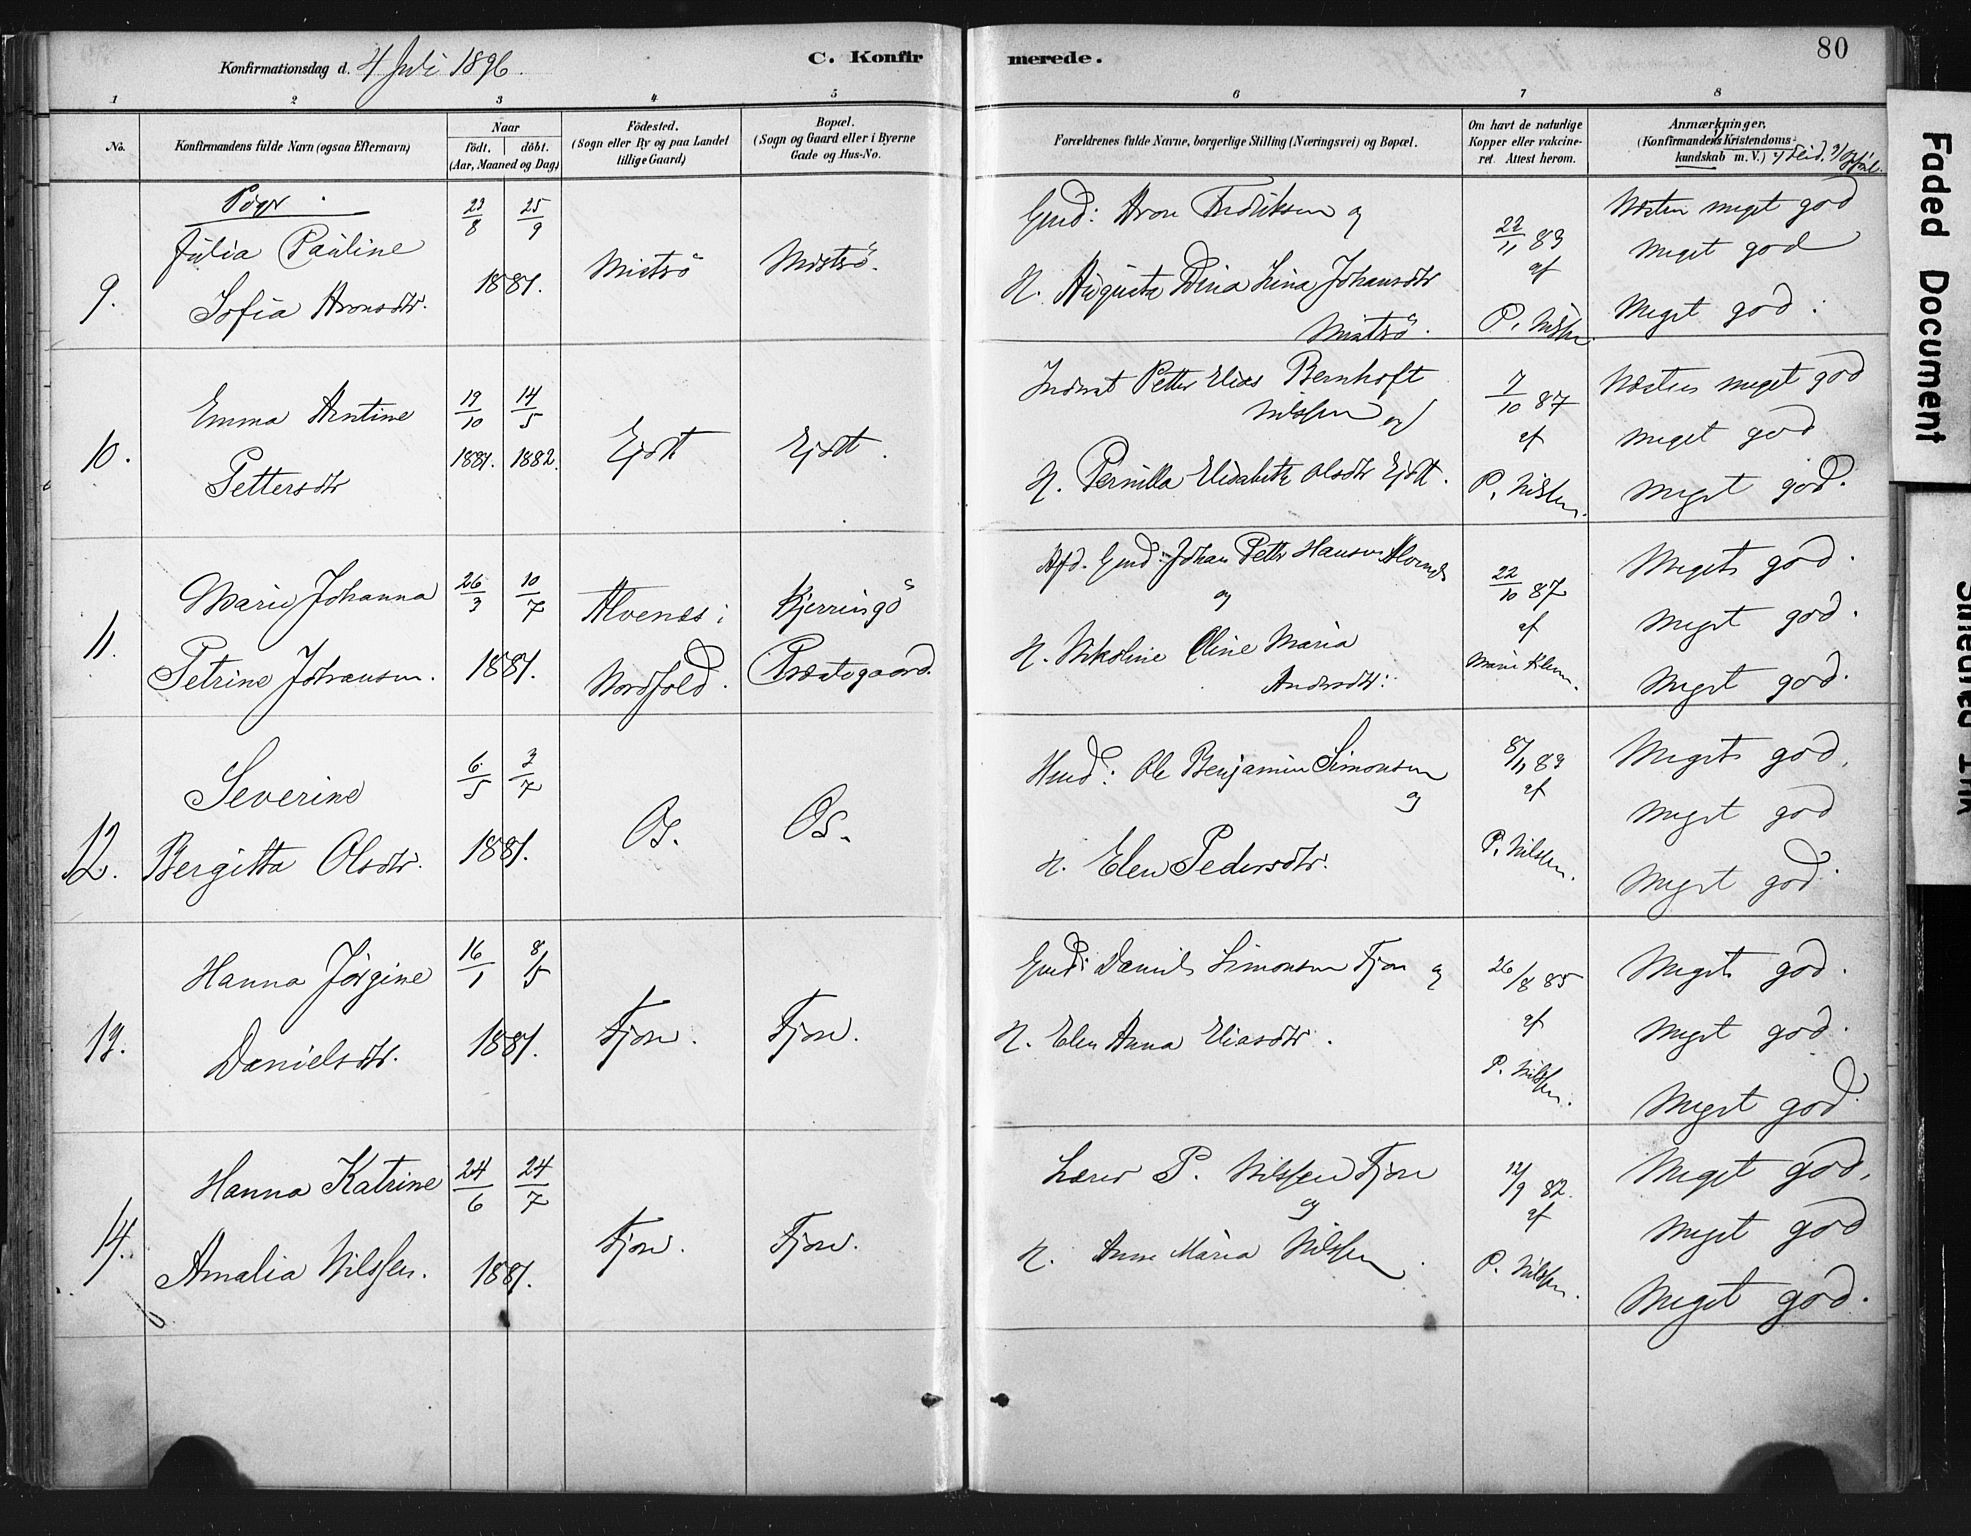 Konfirmationsdag d. 4 Juli 1896.
C. Konfirmerede.
80
1 2 3 4 5 6 7 8
No.
Konfirmandens fulde Navn (ogsaa Efternavn)
Naar
födt. döbt.
(Aar, Maaned og Dag)
Födested.
(Sogn eller By og paa Landet
tillige Gaard)
Bopæl.
(Sogn og Gaard eller i Byerne
Gade og Hus-No.
Forældrenes fulde Navne, borgerlige Stilling (Næringsvei) og Bopæl.
Om havt de naturlige
Kopper eller vakcine-
ret. Attest herom.
Anmærkninger.
(Konfirmandens Kristendoms-
kundskab m. V.) 2) Flid.
9.
Piger.
Julia Pauline
Sofia Aronsdtr.
23/8 25/9
1881.
Mistsö
Mistsö.
Gmd: Aron Fredriksen og
H. Augusta Dina Lina Johansdtr
Mistsö.
22/11 83
af
P. Nilssen
Næsten meget god
Meget god
Meget god.
10.
Emma Arntine
Pettersdtr
19/10 14/5
1881. 1882.
Ejdet
Ejdet.
Inderst Petter Elias Bernhoft
Nilssen og
H. Pernilla Elisabeth Olsdtr Ejdet.
7/10 87
af
P. Nilssen.
Næsten meget god
Meget god
Meget god.
11.
Marie Johanna
Petrine Johansen.
26/3 10/7
1881.
Alvenes i
Nordfold.
Kjerringö
Præstegaard.
Afd. Gmd: Johan Petter Hansen Alvenes
og
H. Nikoline Oline Maria
Andersdtr:
22/10 87
af
Marie Klem.
Meget god.
Meget god.
Meget god.
12.
Severine
Bergitta Olsdtr.
6/5 3/7
1881.
Os.
Os.
Hmd: Ole Benjamin Simonsen
og
H. Elen Pedersdtr:
8/11 83
af
P. Nilssen.
Meget god.
Meget god
Meget god.
13.
Hanna Jörgine
Danielsdtr.
16/1 8/5
1881.
Fjore.
Fjore.
Gmd: Daniel Simonsen Fjore og
H. Elen Anna Eliasdtr.
26/8 85
af
P. Nilssen.
Meget god.
Meget god.
Meget god.
14.
Hanna Katrine
Amalia Nilssen.
24/6 24/7
1881.
Fjore.
Fjore.
Lærer P. Nilssen Fjore
og
H. Anne Maria Nilssen.
12/9 82.
af
P. Nilssen.
Meget god.
Meget god
Meget god.
Faded Document